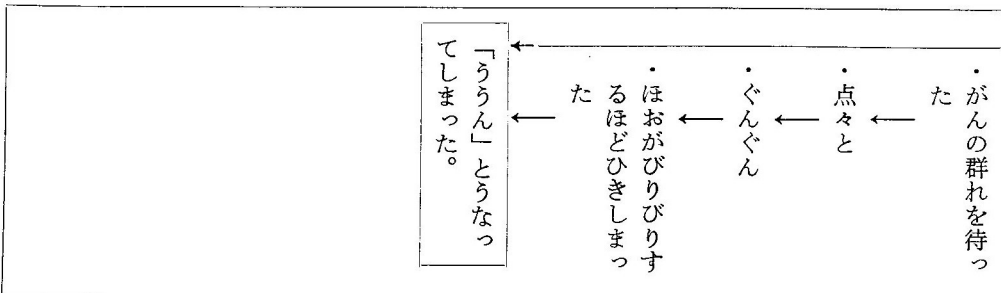 ・がんの群れを待っ
た
・点々と
・ぐんぐん
・ほおがびりびりす
るほどひきしまっ
た
「ううん」とうなっ
てしまった。